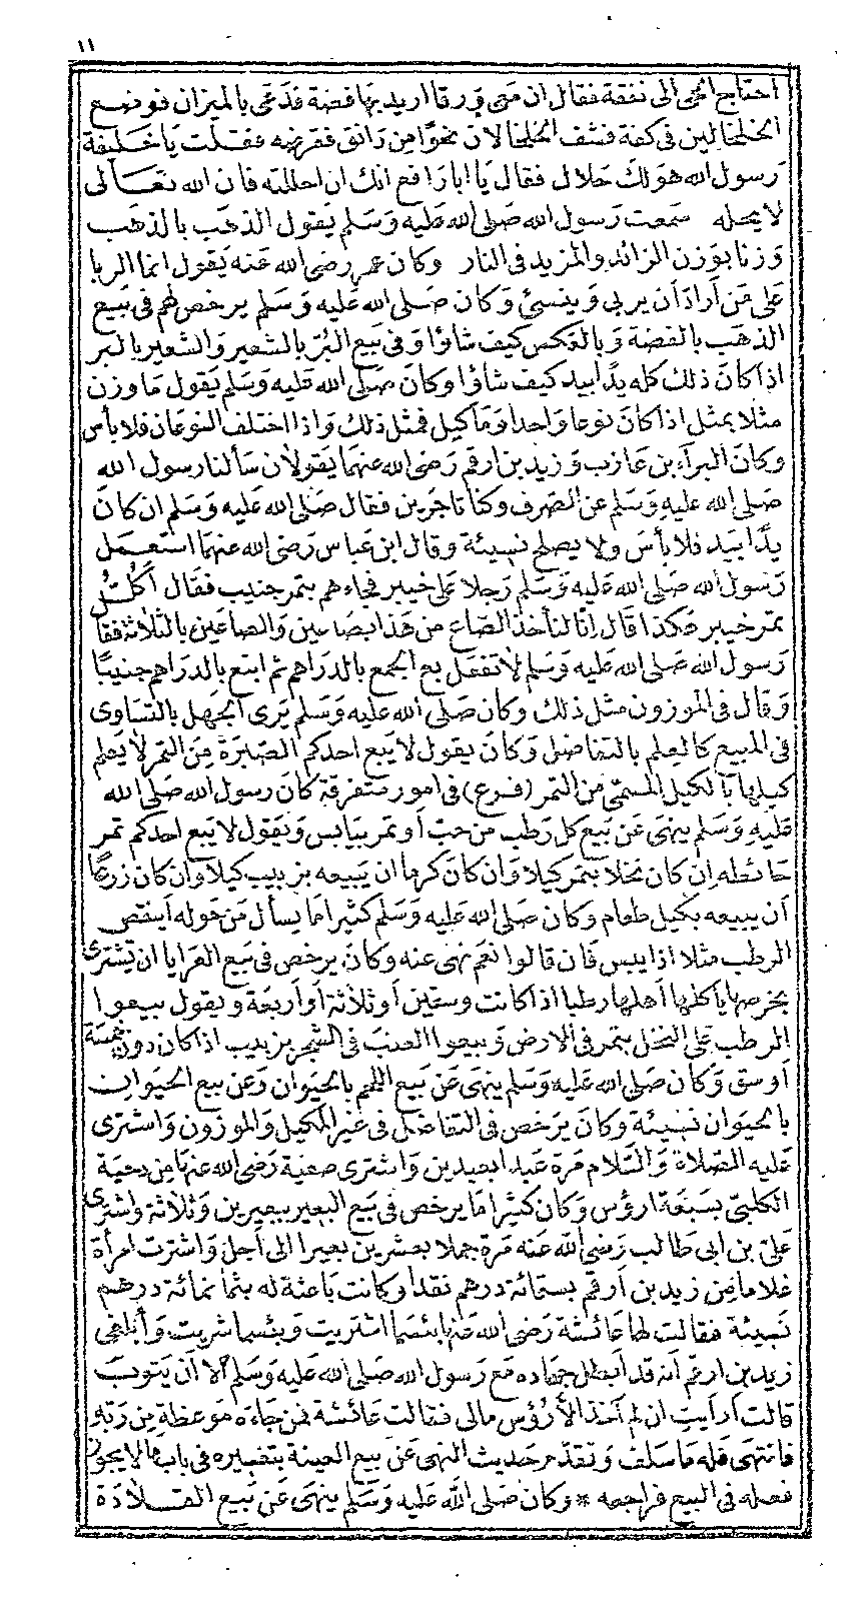 ١١
احتاج الحى الى نفقة فقال ان معى ورقا اريد بها فضة فدعى بالميزان فوضع
الخلخالين فى كفة فشف الخلخالان نحوا من دانق فقرضه فقلت يا خليفة
رسول الله هو لك حلال فقال يا ابا رافع انك ان احللته فان الله تعالى
لا يحله سمعت رسول الله صلى الله عليه وسلم يقول الذهب بالذهب
وزنا بوزن الزائد والمزيد فى النار وكان عمر رضى الله عنه يقول انما الربا
على من أراد أن يربى وينسئ وكان صلى الله عليه وسلم يرخص لهم فى بيع
الذهب بالفضة وبالعكس كيف شاؤا وفى بيع البر بالشعير والشعير بالبر
اذا كان ذلك كله يدا بيد كيف شاؤا وكان صلى الله عليه وسلم يقول ما وزن
مثلا بمثل اذا كان نوعا واحدا وما كيل فمثل ذلك واذا اختلف النوعان فلا بأس
وكان البراء بن عازب وزيد بن ارقم رضى الله عنهما يقولان سألنا رسول الله
صلى الله عليه وسلم عن الصرف وكنا تاجرين فقال صلى الله عليه وسلم ان كان
يدا بيد فلا بأس ولا يصلح نسيئة وقال ابن عباس رضى الله عنهما استعمل
رسول الله صلى الله عليه وسلم رجلا على خيبر فجاءهم بتمر جنيب فقال أكل
تمر خيبر هكذا قال إنا لنأخذ الصاع من هذا بصاعين والصاعين بالثلاثة فقا
رسول الله صلى الله عليه وسلم لا تفعل بع الجمع بالدراهم ثم ابتع بالدراهم جنيبا
وقال فى الموزون مثل ذلك وكان صلى الله عليه وسلم يرى الجهل بالتساوى
فى المبيع كالعلم بالتفاضل وكان يقول لا يبع احدكم الصبرة من التمر لا يعلم
كيلها بالكيل المسمى من التمر (فرع) فى امور متفرقة كان رسول الله صلى الله
عليه وسلم ينهى عن بيع كل رطب من حب أو تمر بيابس ويقول لا يبع احدكم تمر
حائطه إن كان نخلا بتمر كيلا وان كان كرما ان يبيعه بزبيب كيلا وان كان زرعا
أن يبيعه بكيل طعام وكان صلى الله عليه وسلم كثيرا ما يسأل من حوله أينقص
الرطب مثلا اذا يبس فان قالوا نعم نهى عنه وكان يرخص فى بيع العرايا ان تشترى
بخرصها يأكلها أهلها رطبا اذا كانت وسقين أو ثلاثة أو أربعة ويقول بيعوا
الرطب على النخل بتمر فى الارض وبيعوا العنب فى الشجر بزبيب اذا كان دون خمسة
أوسق وكان صلى الله عليه وسلم ينهى عن بيع اللحم بالحيوان وعن بيع الحيوان
بالحيوان نسيئة وكان يرخص فى التفاضل فى غير المكيل والموزون واشترى
عليه الصلاة والسلام مرة عبدا بعبدين واشترى صفية رضى الله عنها من دحية
الكلبى بسبعة ارؤس وكان كثيرا ما يرخص فى بيع البعير ببعيرين وثلاثة واشترى
على بن ابى طالب رضى الله عنه مرة جملا بعشرين بعيرا الى أجل واشترت امرأة
غلاما من زيد بن أرقم بستمائة درهم نقدا وكانت باعته له بثمانمائة درهم
نسيئة فقالت لها عائشة رضى الله عنها بئسما اشتريت وبئسما شريت وأبلغى
زيد بن ارقم انه قد أبطل جهاده مع رسول الله صلى الله عليه وسلم الا أن يتوب
قالت أرأيت ان لم آخذ الا رؤس مالى فقالت عائشة فمن جاءه موعظة من ربه
فانتهى فله ما سلف وتقدم حديث النهى عن بيع العينة بتفسيره فى باب ما لا يجوز
فعله فى البيع فراجعه * وكان صلى الله عليه وسلم ينهى عن بيع القلادة